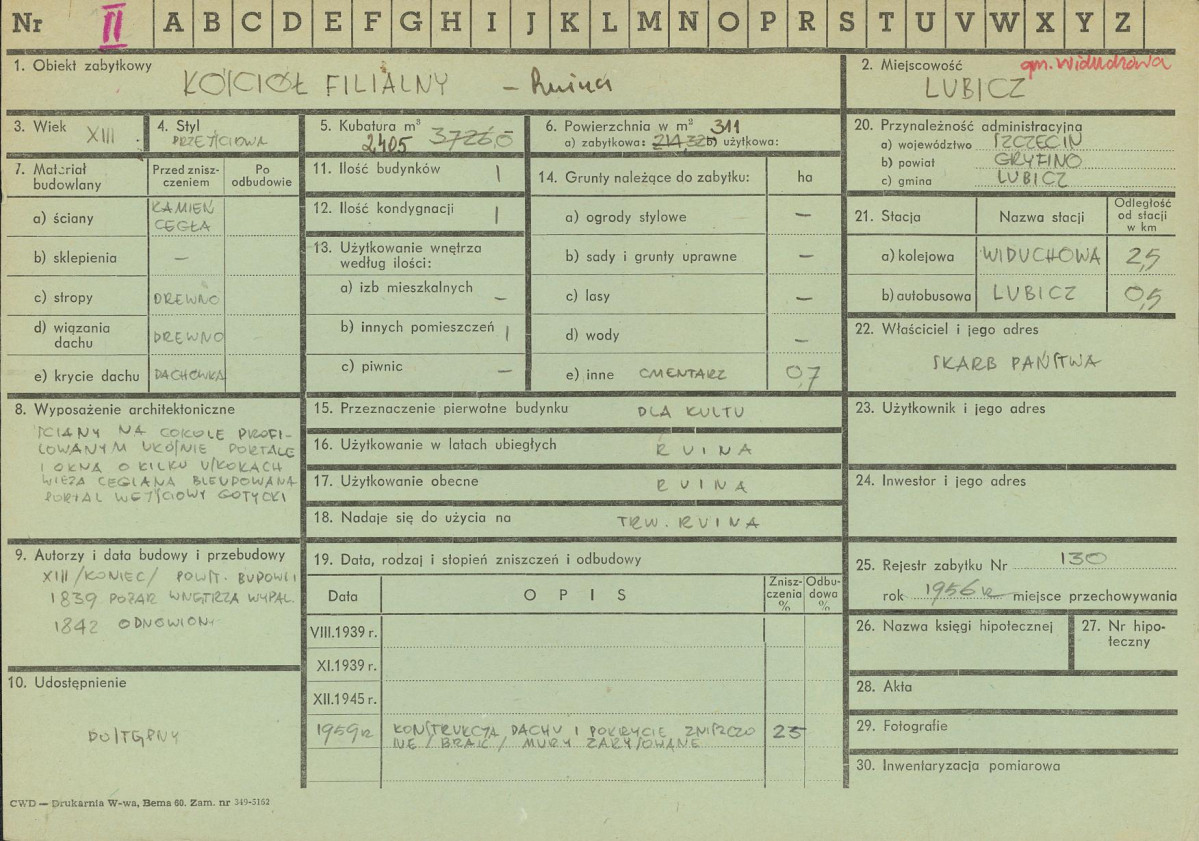 Nr II A B C D E F G H I J K L M N O P R S T U V W X Y Z
1. Obiekt zabytkowy
KOŚCIÓŁ FILIALNY – Ruina
2. Miejscowość gm. Widuchowa
LUBICZ
3. Wiek XIII
4. Styl
PRZEJŚCIOWA
5. Kubatura m³ 3726,0
2405
6. Powierzchnia w m² 311
a) zabytkowa: 214,32 b) użytkowa:
20. Przynależność administracyjna
a) województwo SZCZECIN
b) powiat GRYFINO
c) gmina LUBICZ
7. Materiał budowlany
Przed zniszczeniem
Po odbudowie
a) ściany KAMIEŃ
CEGŁA
b) sklepienia –
c) stropy DREWNO
d) wiązania dachu DREWNO
e) krycie dachu DACHÓWKA
11. Ilość budynków 1
12. Ilość kondygnacji 1
13. Użytkowanie wnętrza
według ilości:
a) izb mieszkalnych –
b) innych pomieszczeń 1
c) piwnic –
14. Grunty należące do zabytku: ha
a) ogrody stylowe –
b) sady i grunty uprawne –
c) lasy –
d) wody –
e) inne CMENTARZ 0,7
21. Stacja Nazwa stacji Odległość od stacji w km
a) kolejowa WIDUCHOWA 2,5
b) autobusowa LUBICZ 0,5
22. Właściciel i jego adres
SKARB PAŃSTWA
8. Wyposażenie architektoniczne
ŚCIANY NA COKOLE PROFI-
LOWANYM UKOŚNIE PORTALE
I OKNA O KILKU USKOKACH
WIEŻA CEGLANA BLENDOWANA
PORTAL WEJŚCIOWY GOTYCKI
15. Przeznaczenie pierwotne budynku DLA KULTU
16. Użytkowanie w latach ubiegłych RUINA
17. Użytkowanie obecne RUINA
18. Nadaje się do użycia na TRW. RUINA
23. Użytkownik i jego adres
24. Inwestor i jego adres
9. Autorzy i data budowy i przebudowy
XIII /KONIEC/ POWST. BUDOWLI
1839 POŻAR WNĘTRZA WYPAL.
1842 ODNOWION
10. Udostępnienie
DOSTĘPNY
19. Data, rodzaj i stopień zniszczeń i odbudowy
Data OPIS Zniszczenia % Odbudowa %
VIII.1939 r.
XI.1939 r.
XII.1945 r.
1959 r KONSTRUKCJA DACHU I POKRYCIE ZNISZCZO 25
NE /BRAK/ MURY ZARYSOWANE
25. Rejestr zabytku Nr 130
rok 1956 r miejsce przechowywania
26. Nazwa księgi hipotecznej
27. Nr hipo-
teczny
28. Akta
29. Fotografie
30. Inwentaryzacja pomiarowa
CWD — Drukarnia W-wa, Bema 60. Zam. nr 349-5162